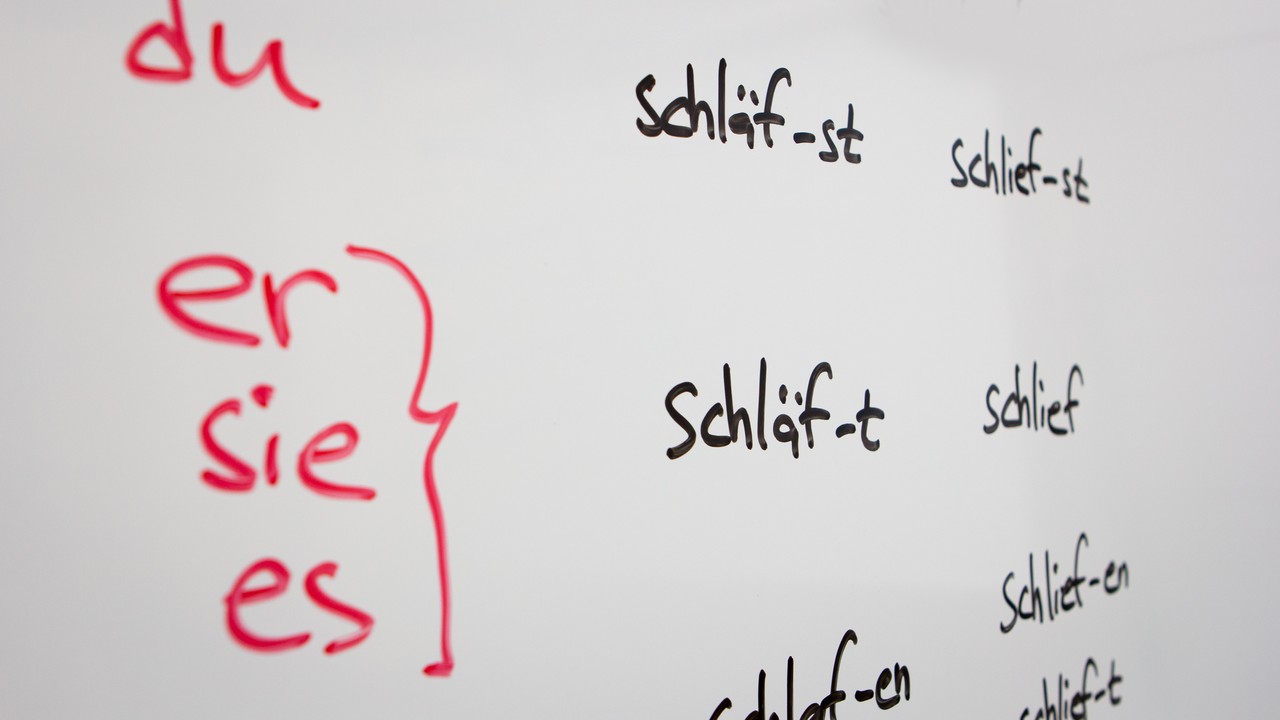 du schläf-st schlief-st
er
sie schläf-t schlief
es
schlief-en
schlaf-en
schlief-t